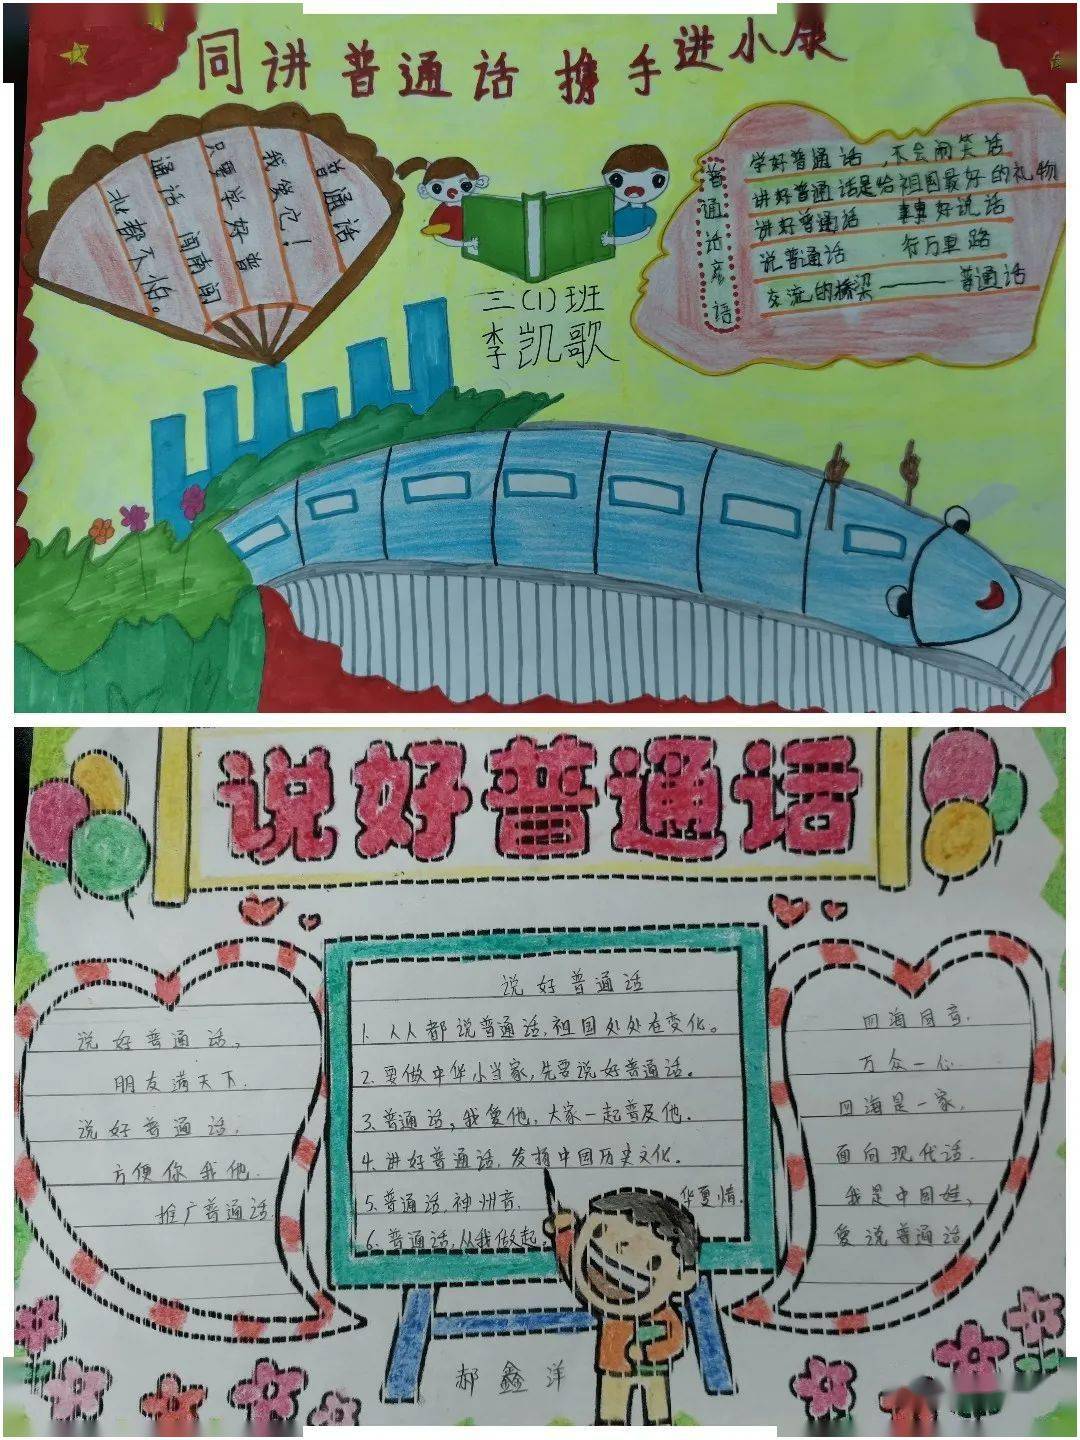 同讲普通话 携手进小康
普通话
我爱它！
只要学好普
通话 闯南闯
北都不怕。
三(1)班
李凯歌
普通话家语
学好普通话 不会闹笑话
讲好普通话是给祖国最好的礼物
讲好普通话 事事好说话
说普通话 行万里路
交流的桥梁——普通话
说好普通话
说好普通话，
朋友满天下.
说好普通话，
方便你我他.
推广普通话.
说好普通话
1. 人人都说普通话，祖国处处在变化。
2. 要做中华小当家，先要说好普通话。
3. 普通话，我爱他，大家一起普及他。
4. 讲好普通话，发扬中国历史文化。
5. 普通话，神州音. 华夏情.
6. 普通话，从我做起.
四海同音.
万众一心.
四海是一家，
面向现代话.
我是中国娃，
爱说普通话
郝鑫洋